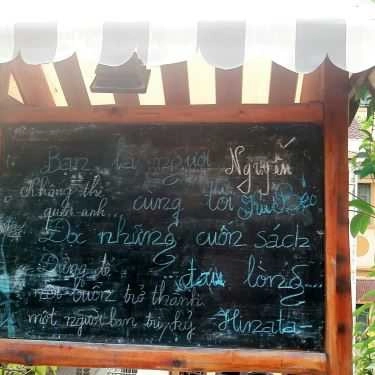 Bạn là người Nguyễn
Không thể cùng tôi
quên anh...
Đọc những cuốn sách
Đừng để ...đau lòng...
nỗi buồn trở thành
một người bạn tri kỷ Hinata